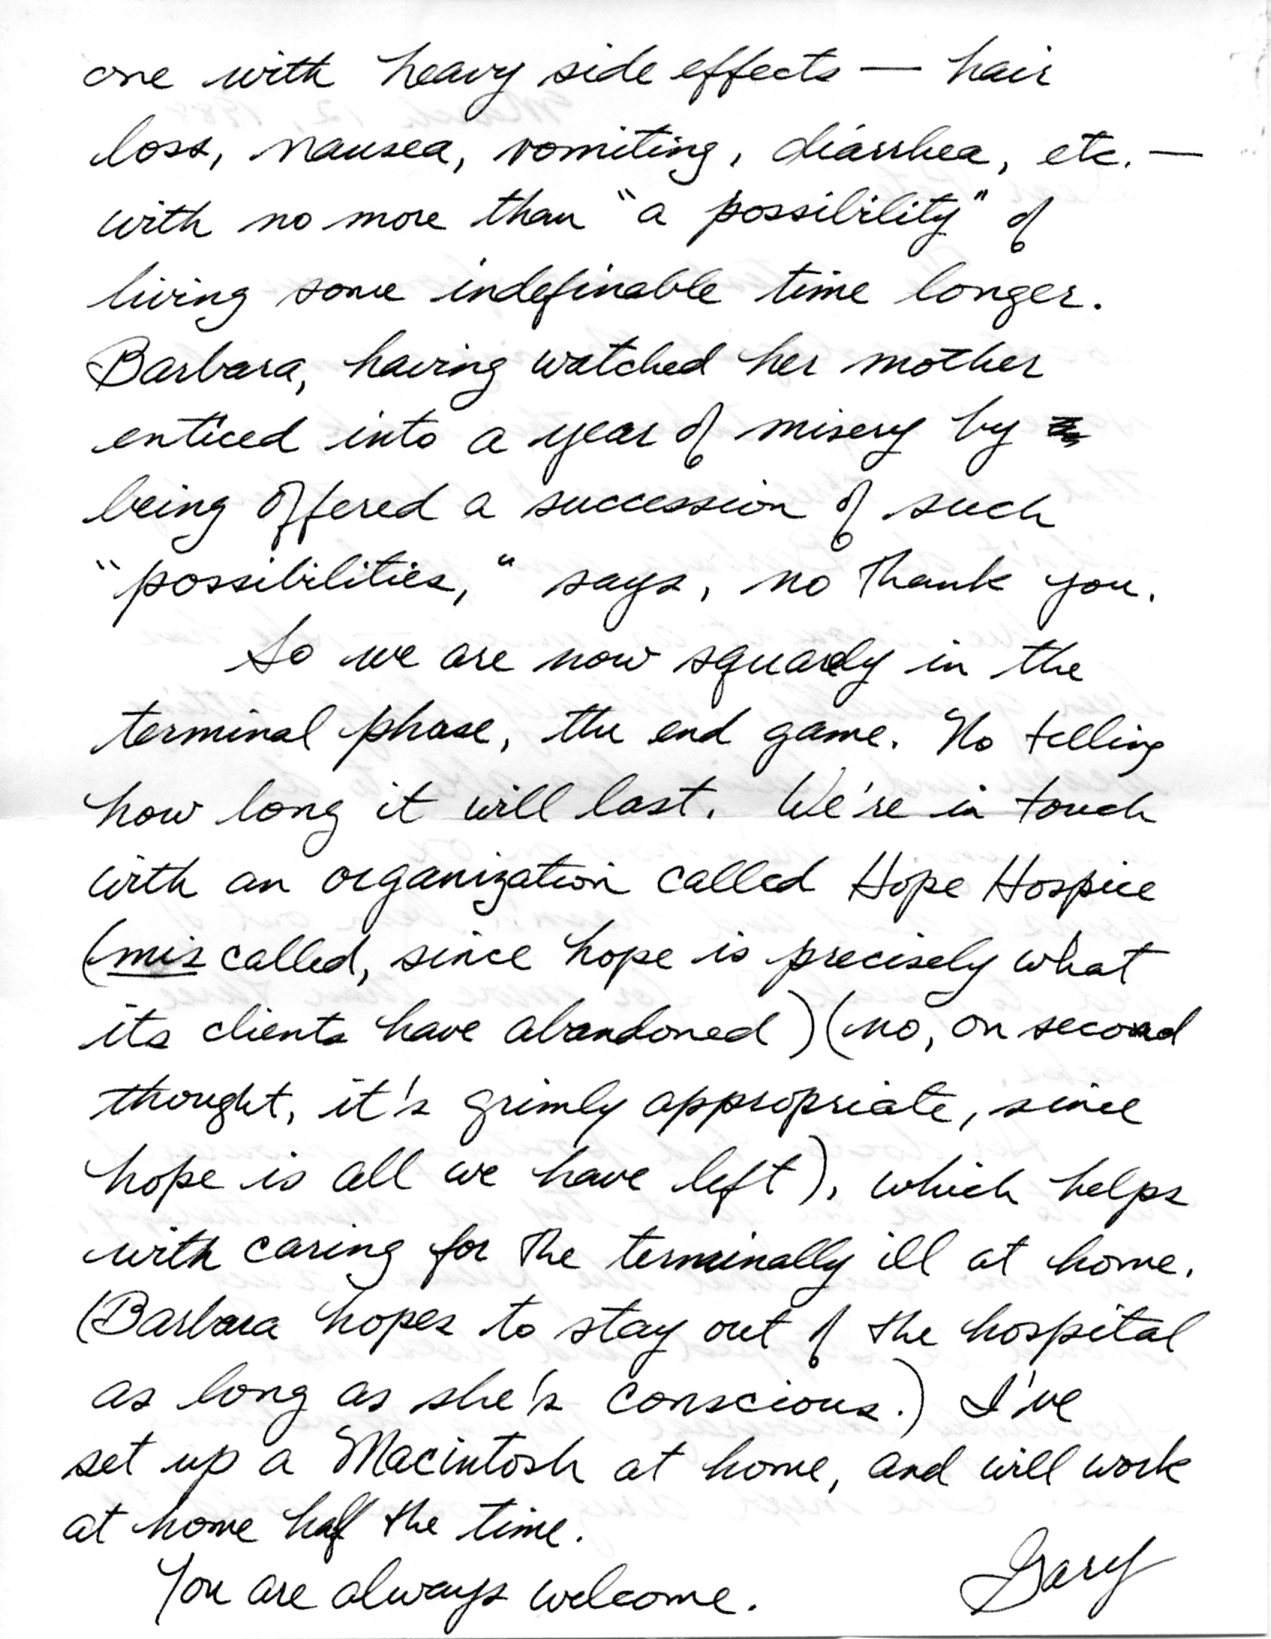 one with heavy side effects — hair
loss, nausea, vomiting, diarrhea, etc. —
with no more than "a possibility" of
living some indefinable time longer.
Barbara, having watched her mother
enticed into a year of misery by
being offered a succession of such
"possibilities," says, no thank you.
So we are now squarely in the
terminal phase, the end game. No telling
how long it will last. We're in touch
with an organization called Hope Hospice
(miscalled, since hope is precisely what
its clients have abandoned) (no, on second
thought, it's grimly appropriate, since
hope is all we have left), which helps
with caring for the terminally ill at home.
(Barbara hopes to stay out of the hospital
as long as she's conscious.) I've
set up a Macintosh at home, and will work
at home half the time.
You are always welcome.
Gary